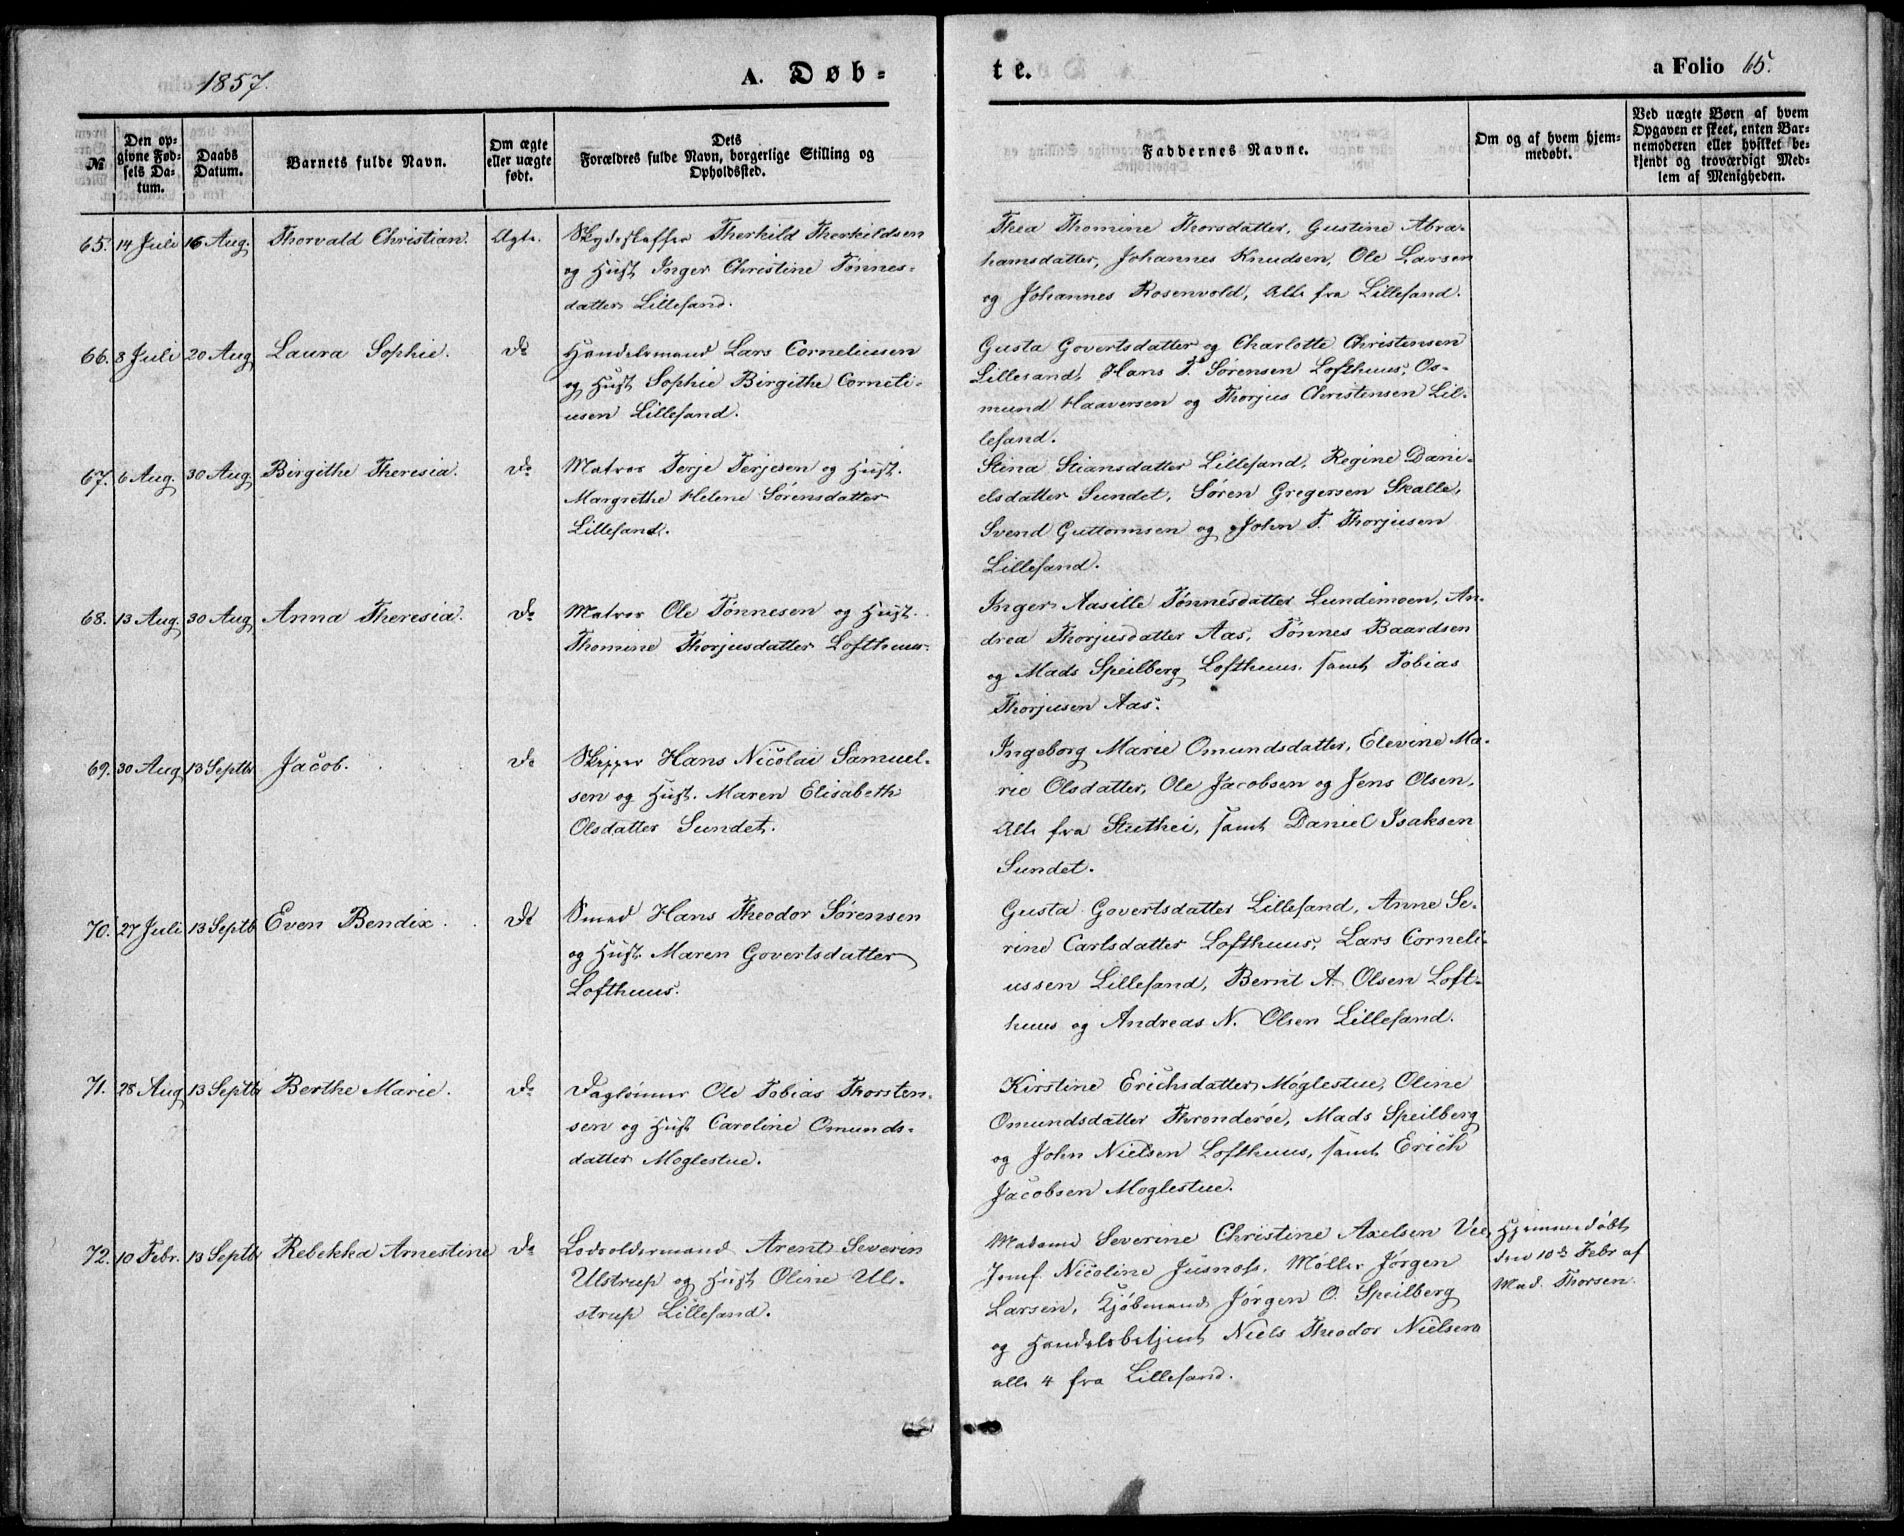 1857. A. Døb- te. a Folio 65.
№
Den op-
givne Fød-
sels Da-
tum.
Daabs
Datum.
Barnets fulde Navn.
Om ægte
eller uægte
født.
Dets
Forældres fulde Navn, borgerlige Stilling og
Opholdssted.
Faddernes Navne.
Om og af hvem hjem-
medøbt.
Ved uægte Børn af hvem
Opgaven er skeet, enten Bar-
nemoderen eller hvilket be-
kjendt og troværdigt Med-
lem af Menigheden.
65. 14 Juli 16 Aug. Thorvald Christian. Ægte. Skydsskaffer Therkild Therkildsen
og Hust Inger Christine Tønnes-
datter Lillesand.
Thea Thomine Thorsdatter, Gustine Abra-
hamsdatter, Johannes Knudsen, Ole Larsen
og Johannes Rosenvold, Alle fra Lillesand.
66. 8 Juli 20 Aug Laura Sophie. Do Handelsmand Lars Corneliusen
og Hust Sophie Birgithe Corneli-
usen Lillesand.
Gusta Govertsdatter og Charlotte Christensen
Lillesand, Hans T. Sørensen Lofthuus, Os-
mund Haaversen og Thorjus Christensen Lil-
lesand.
67. 6 Aug. 30 Aug. Birgithe Theresia. Do Matros Terje Terjesen og Hust.
Margrethe Helene Sørensdatter
Lillesand.
Stina Stiansdatter Lillesand, Regine Dani-
elsdatter Sundet, Søren Gregersen Skalle,
Svend Guttormsen og John T. Thorjusen
Lillesand.
68. 13 Aug. 30 Aug Anna Theresia. Do Matros Ole Tønnesen og Hust.
Thomine Thorjusdatter Lofthuus.
Inger Aasille Tønnesdatter Lundemoen, An-
drea Thorjusdatter Aas, Tønnes Baardsen
og Mads Speilberg Lofthuus. samt Tobias
Thorjusen Aas.
69. 30 Aug 13 Septbr Jacob. Do Skipper Hans Nicolai Samuel-
sen og Hust. Maren Elisabeth
Olsdatter Sundet.
Ingeborg Marie Omundsdatter, Elevine Ma-
rie Olsdatter, Ole Jacobsen og Jens Olsen,
Alle fra Stuthei, samt Daniel Isaksen
Sundet.
70. 27 Juli 13 Septb Even Bendix. Do Smed Hans Theodor Sørensen
og Hust. Maren Govertsdatter
Lofthuus.
Gusta Govertsdatter Lillesand, Anne Se-
rine Carlsdatter Lofthuus, Lars Corneli-
ussen Lillesand, Bernt A. Olsen Loft-
huus og Andreas N. Olsen Lillesand.
71. 28 Aug 13 Septbr Berthe Marie. Do Daglønner Ole Tobias Thorsten-
sen og Hust Caroline Omunds-
datter Moglestue.
Kirstine Erichsdatter Møglestue, Oline
Omundsdatter Thronderøe, Mads Speilberg
og John Nielsen Lofthuus, samt Erich
Jacobsen Moglestue.
72. 10 Febr. 13 Septb Rebekka Arnestine Do Lodsoldermand Arent Severin
Ulstrup og Hust Oline Ul-
strup Lillesand.
Madame Severine Christine Axelsen Vee,
Jomf. Nicoline Jusnoss, Møller Jørgen
Larsen, Kjøbmand Jørgen O. Speilberg
og Handelsbetjent Niels Theodor Nielsen
alle 4 fra Lillesand.
Hjemmedøbt
den 10de Febr af
Mad. Thorsen.